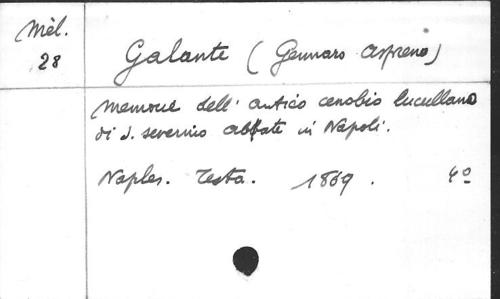 Mèl.
28
Galante (Gennaro Aspreno)
Memorie dell' antico cenobio lucullano
di S. Severino abbate in Napoli.
Naples. Testa. 1869. 4º